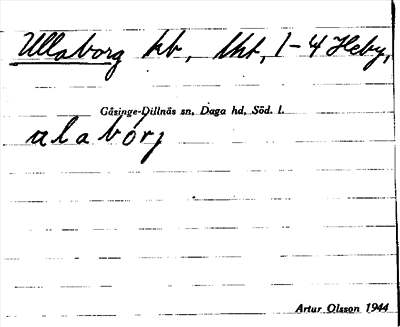 Ullaborg hb, lht, 1-4 Heby,
Gåsinge-Dillnäs sn, Daga hd, Söd. l.
ulabórj
Artur Olsson 1944